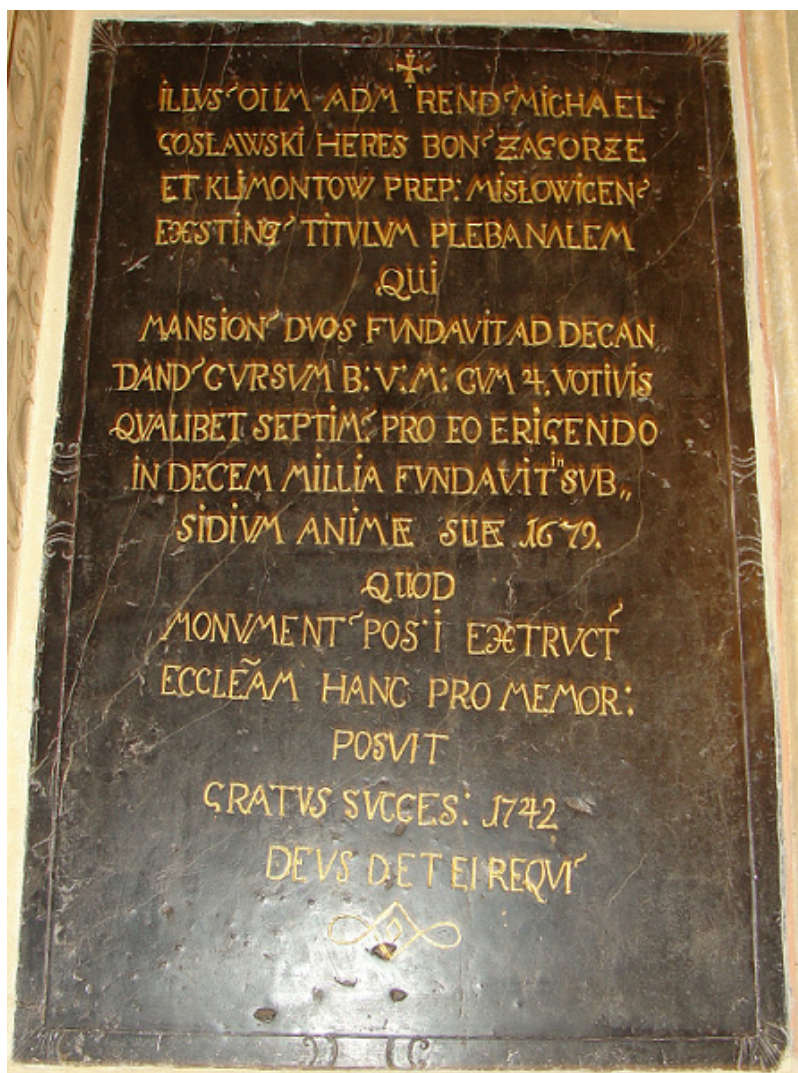 ILLUS՛ OLIM ADM՛ REND՛ MICHAEL
GOSŁAWSKI HERES BON՛ ZAGORZE
ET KLIMONTOW PREP: MISŁOWICEN՛
TITVLVM PLEBANALEM
QUI
MANSION՛ DVOS FVNDAVIT AD DECAN„
DAND՛ CVRSVM B: V: M: CUM 4. VOTIVIS
QVALIBET SEPTIM՛ PRO EO ERIGENDO
IN DECEM MILLIA FVNDAVIT in SVB„
SIDIVM ANIMÆ SUÆ 1679.
QUOD
MONVMENT՛ POS՛I EXTRVCT՛
ECCLEÃM HANC PRO MEMOR:
POSVIT
GRATVS SVCCES: 1742
DEVS DET EI REQVI՛